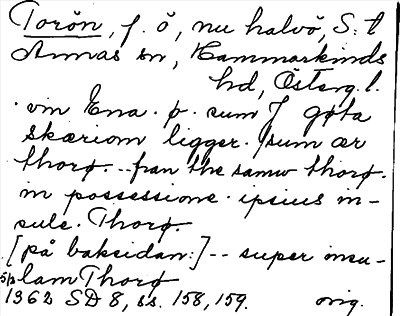 Torön, f. ö, nu halvö, S:t
Annas sn, Hammarkinds
hd, Österg. l.
· vm Ena · ø · sum J gøta
skæriom ligger · sum ær
thorø · -- fran the samw thorø ·
in possessione · ipsius in-
sule · Thorø ·
[på baksidan:] -- super insu-
lam Thorø
5/2
1362 SD 8, ss. 158, 159. orig.